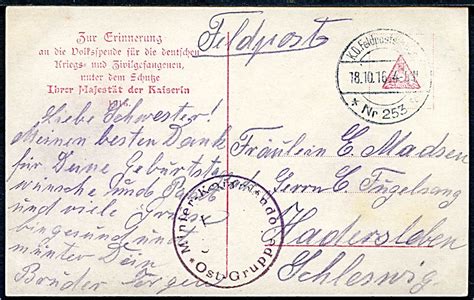 Zur Erinnerung
an die Volksspende für die deutschen
Kriegs- und Zivilgefangenen,
unter dem Schutze
Ihrer Majestät der Kaiserin
Feldpost
K.D. Feldpost
18.10.16. 4-
* Nr 253
Liebe Schwester!
Meinen besten Dank
für Deine Geburtsta
wünsche und
und viele
bin gesund und
munter Dein
Bruder
Fräulein C. Madsen
Herrn C. Fuglsang
Hadersleben
Schleswig.
Ost-Gruppe